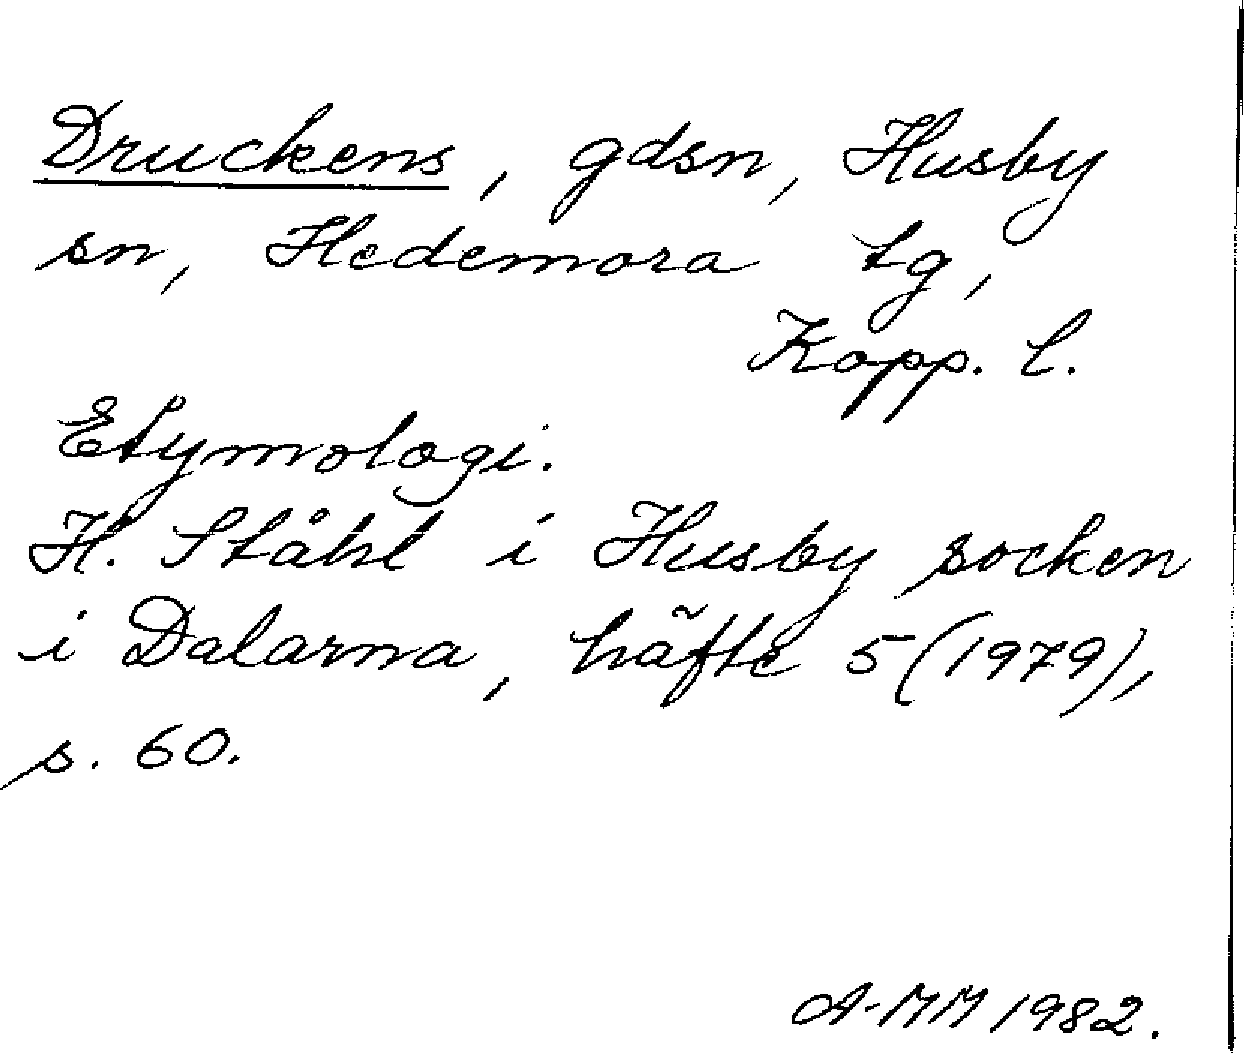 Druckens, gdsn, Husby
sn, Hedemora tg,
Kopp. l.
Etymologi.
H. Ståhl i Husby socken
i Dalarna, häfte 5 (1979),
s. 60.
A-MM 1982.